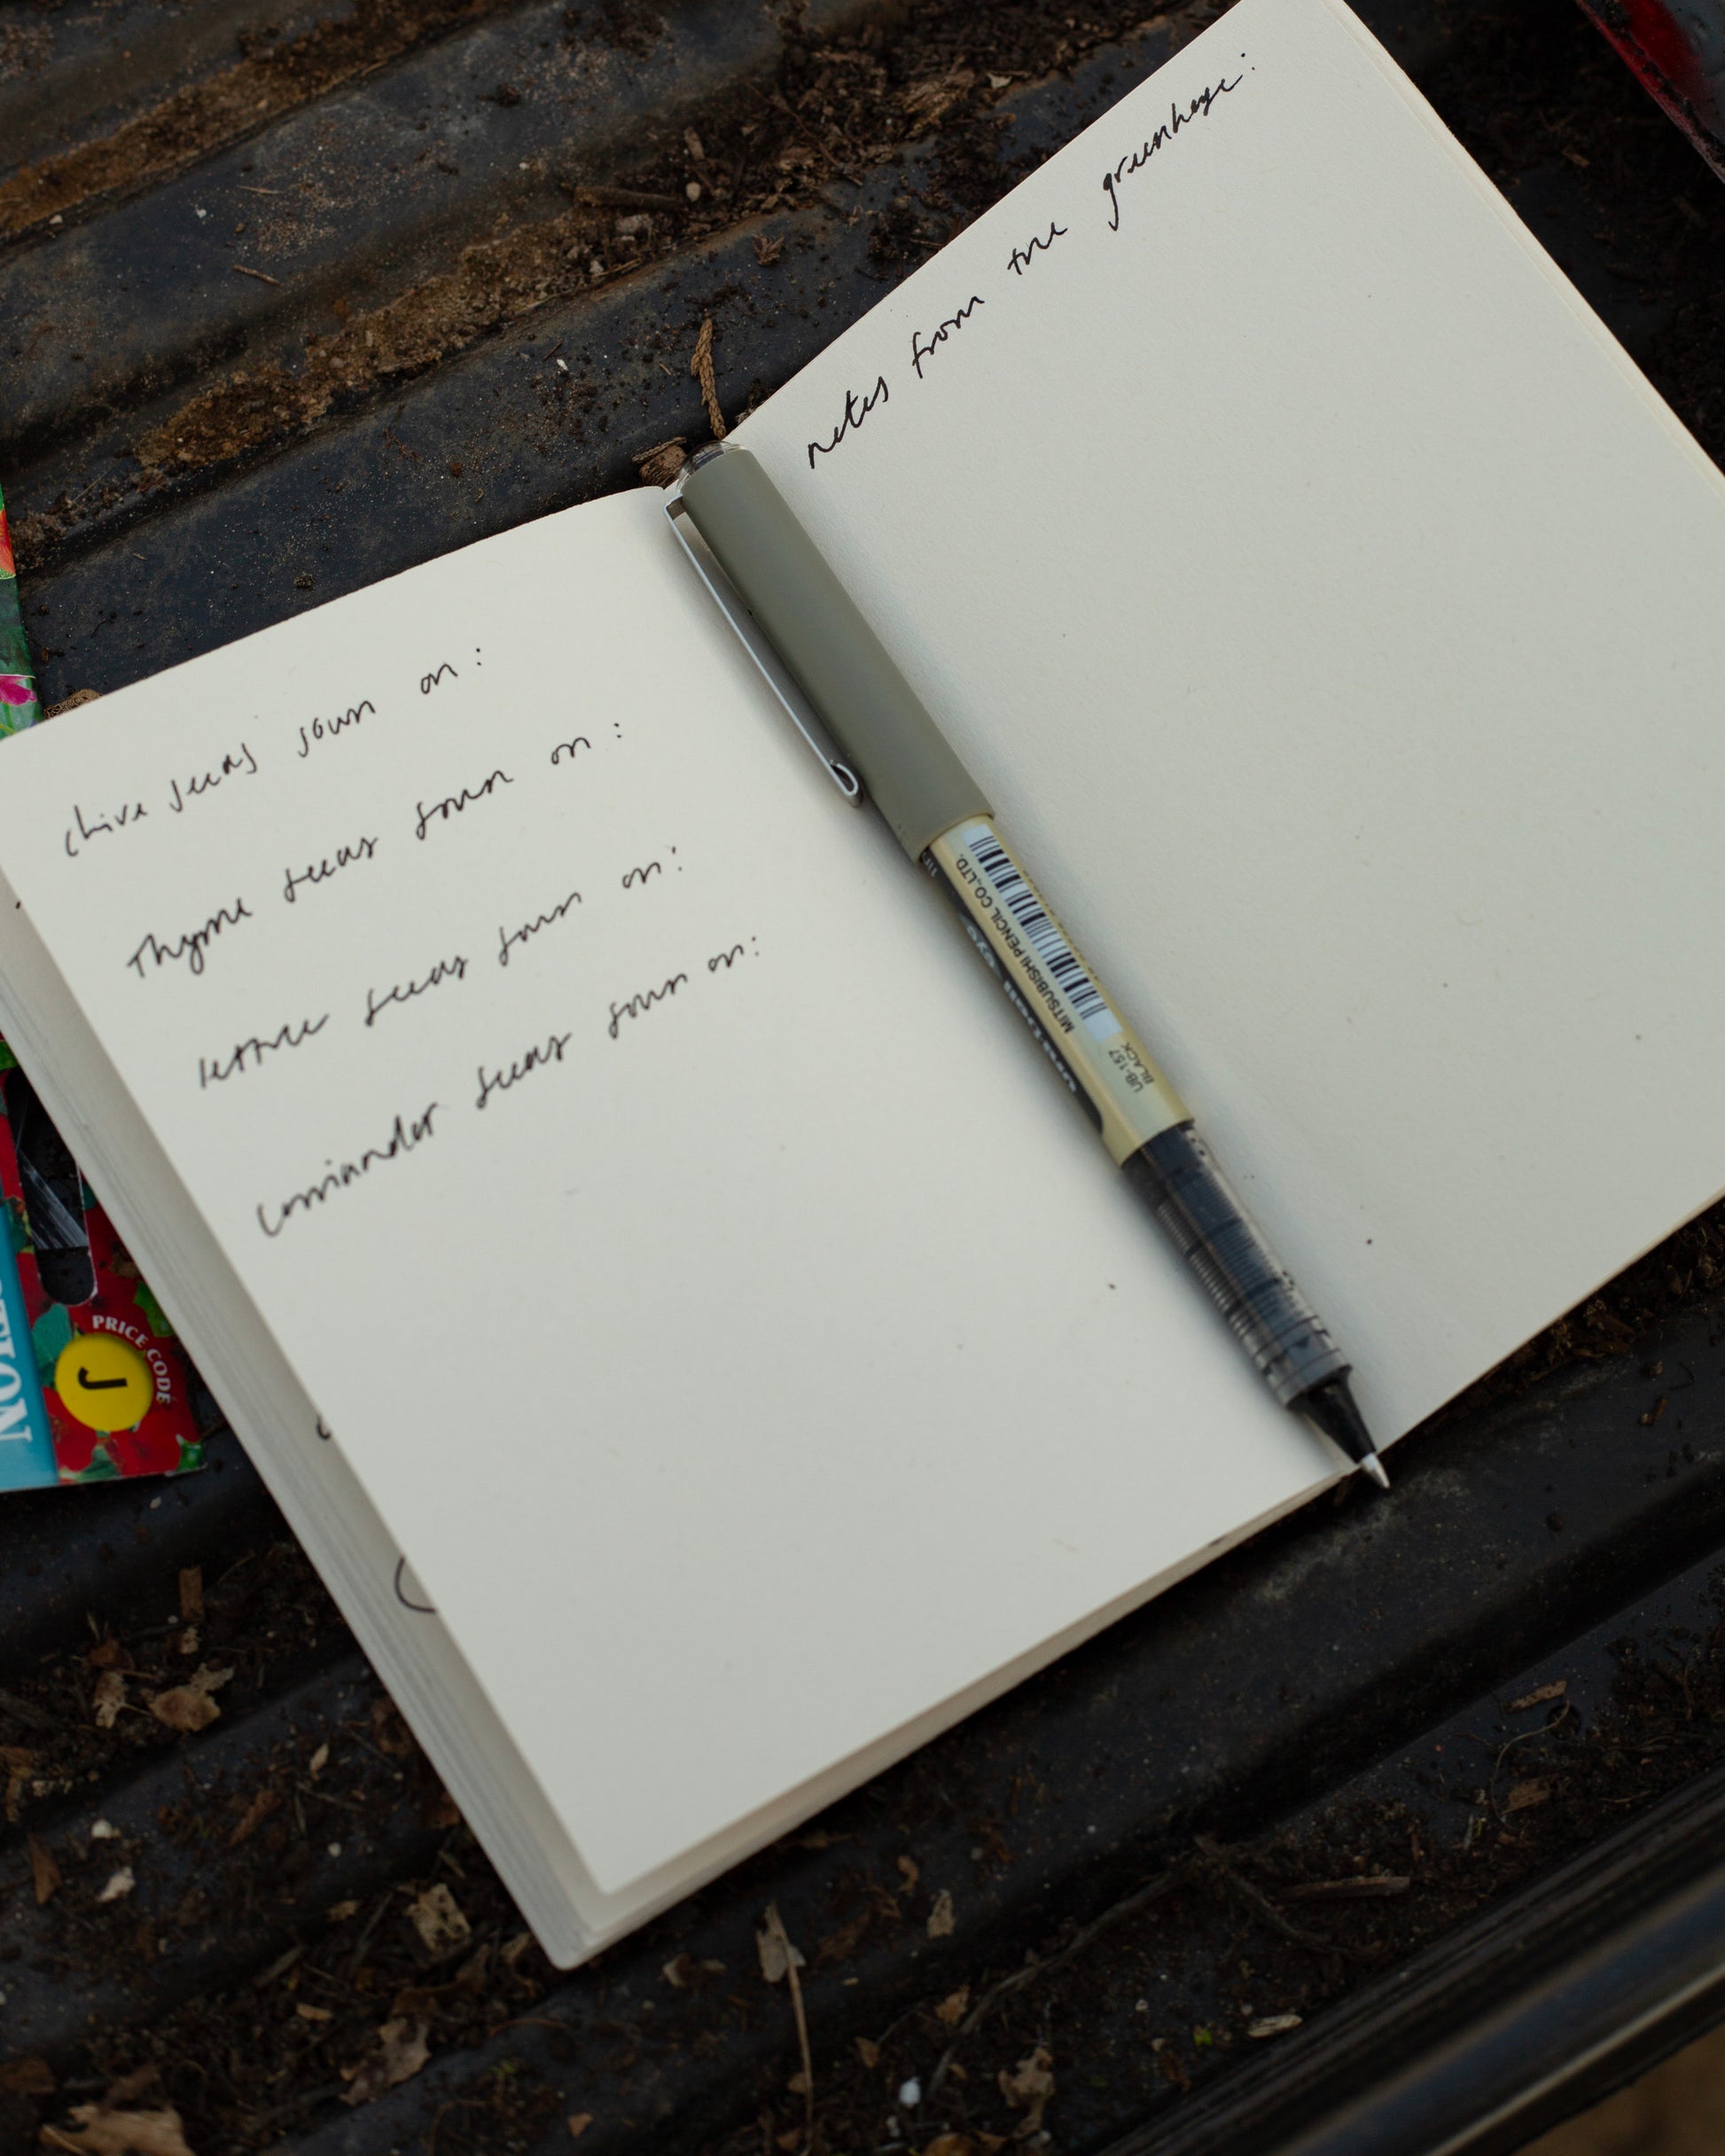 chive seeds sown on:
Thyme seeds sown on:
lettuce seeds sown on:
Corriander seeds sown on:
notes from the greenhouse:
MITSUBISHI PENCIL CO., LTD.
uni-ball eye
UB-157
BLACK
PRICE CODE
J